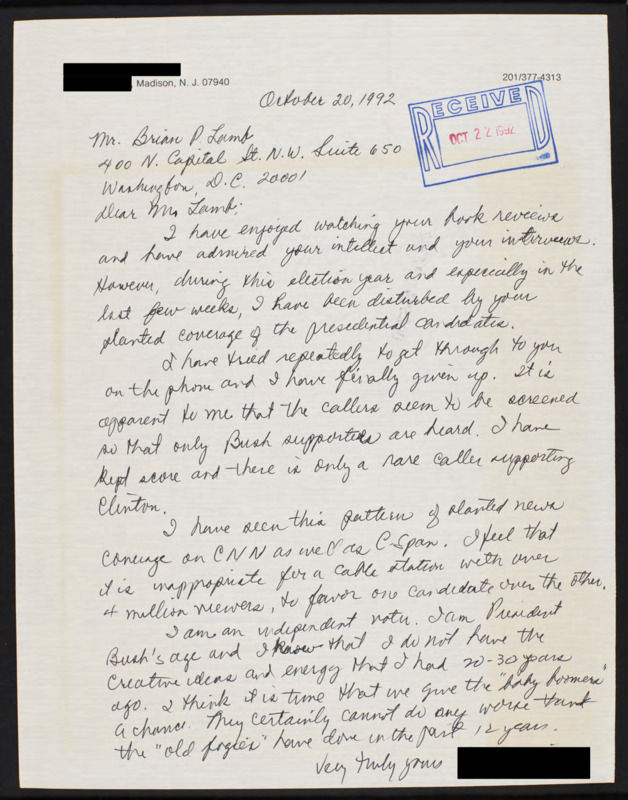 , Madison, N. J. 07940
201/377-4313
October 20, 1992
RECEIVED
OCT 22 1992
Mr. Brian P. Lamb
400 N. Capital St. N.W. Suite 650
Washington, D.C. 20001
Dear Mr. Lamb:
I have enjoyed watching your book reviews
and have admired your intellect and your interviews.
However, during this election year and especially in the
last few weeks, I have been disturbed by your
slanted coverage of the presidential candidates.
I have tried repeatedly to get through to you
on the phone and I have finally given up. It is
apparent to me that the callers seem to be screened
so that only Bush supporters are heard. I have
kept score and there is only a rare caller supporting
Clinton.
I have seen this pattern of slanted news
coverage on CNN as well as C-Span. I feel that
it is inappropriate for a cable station with over
4 million viewers, to favor one candidate over the other.
I am an independent voter. I am President
Bush's age and I know that I do not have the
creative ideas and energy that I had 20-30 years
ago. I think it is time that we give the "baby boomers"
a chance. They certainly cannot do any worse than
the "old fogies" have done in the past 12 years.
Very truly yours